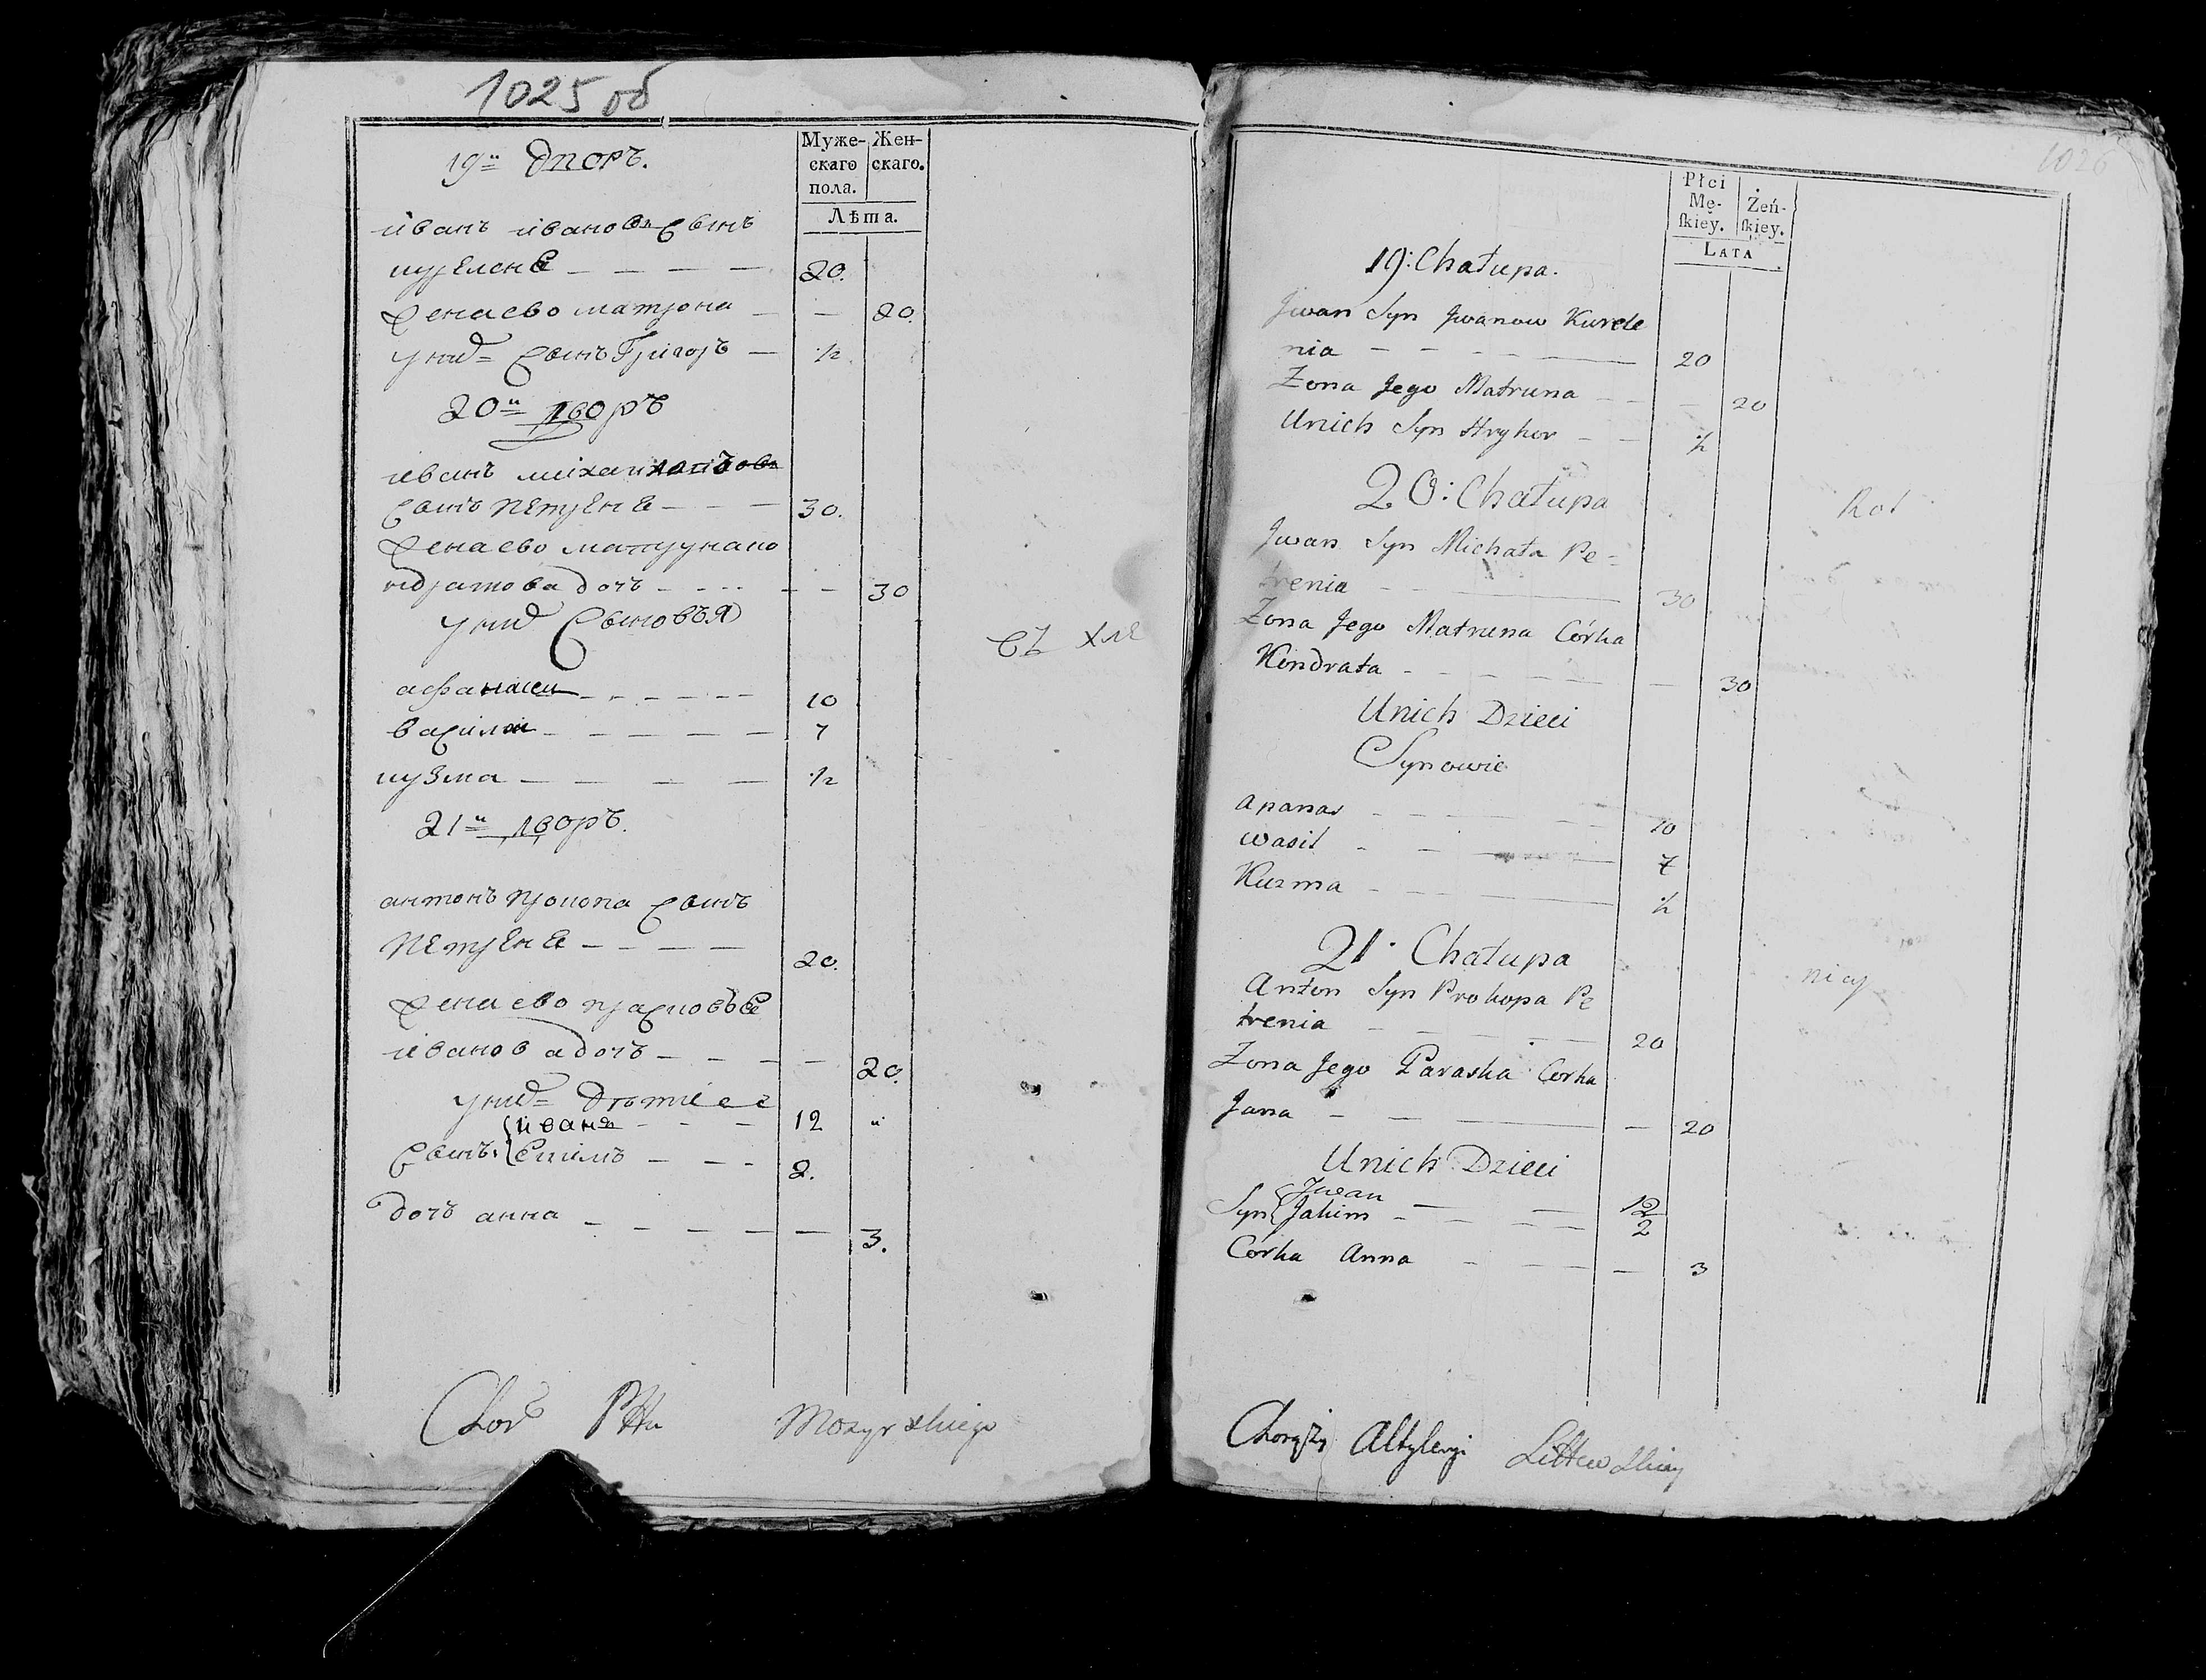 1025 об
19й дворъ.
Муже-
скаго
пола.
Жен-
скаго.
Лѣта.
иванъ ивановъ сынъ
курЕленЯ 20.
Жена ево матрона 20.
у них сынъ Григоръ ½
20й дворъ
иванъ
сынъ пЕтрЕнЯ 30.
Жена ево матруна ко
ндратова дочь 30
у них сыновья
афанасеи 10
василеи 7
кузма ½
21й дворъ.
антонъ прокопа сынъ
пЕтрЕнЯ 20.
Жена ево прасковья
иванова дочь 20.
у них дѣти
иванъ 12
сынъ Екимъ 2.
дочь анна 3.
Chor Pttu Mozyrskiego
1026
Płci
Mę-
ſkiey.
Żeń-
ſkiey.
LATA
19: Chałupa.
Jwan Syn Jwanow Kurele
nia 20
Zona Jego Matruna 20
Unich Syn Hryhor ½
20: Chałupa
Jwan Syn Michała Pe-
trenia 30
Zona Jego Matruna Córka
Kondrata 30
Unich Dzieci
Synowie
Apanas 10
Wasil 7
Kuzma ½
21: Chałupa
Anton Syn Prokopa Pe
trenia 20
Zona Jego Paraska Corka
Jana 20
Unich Dzieci
Jwan 12
Syn Jakim 2
Córka Anna 3
Chorąży Altyleryi Litewskiey